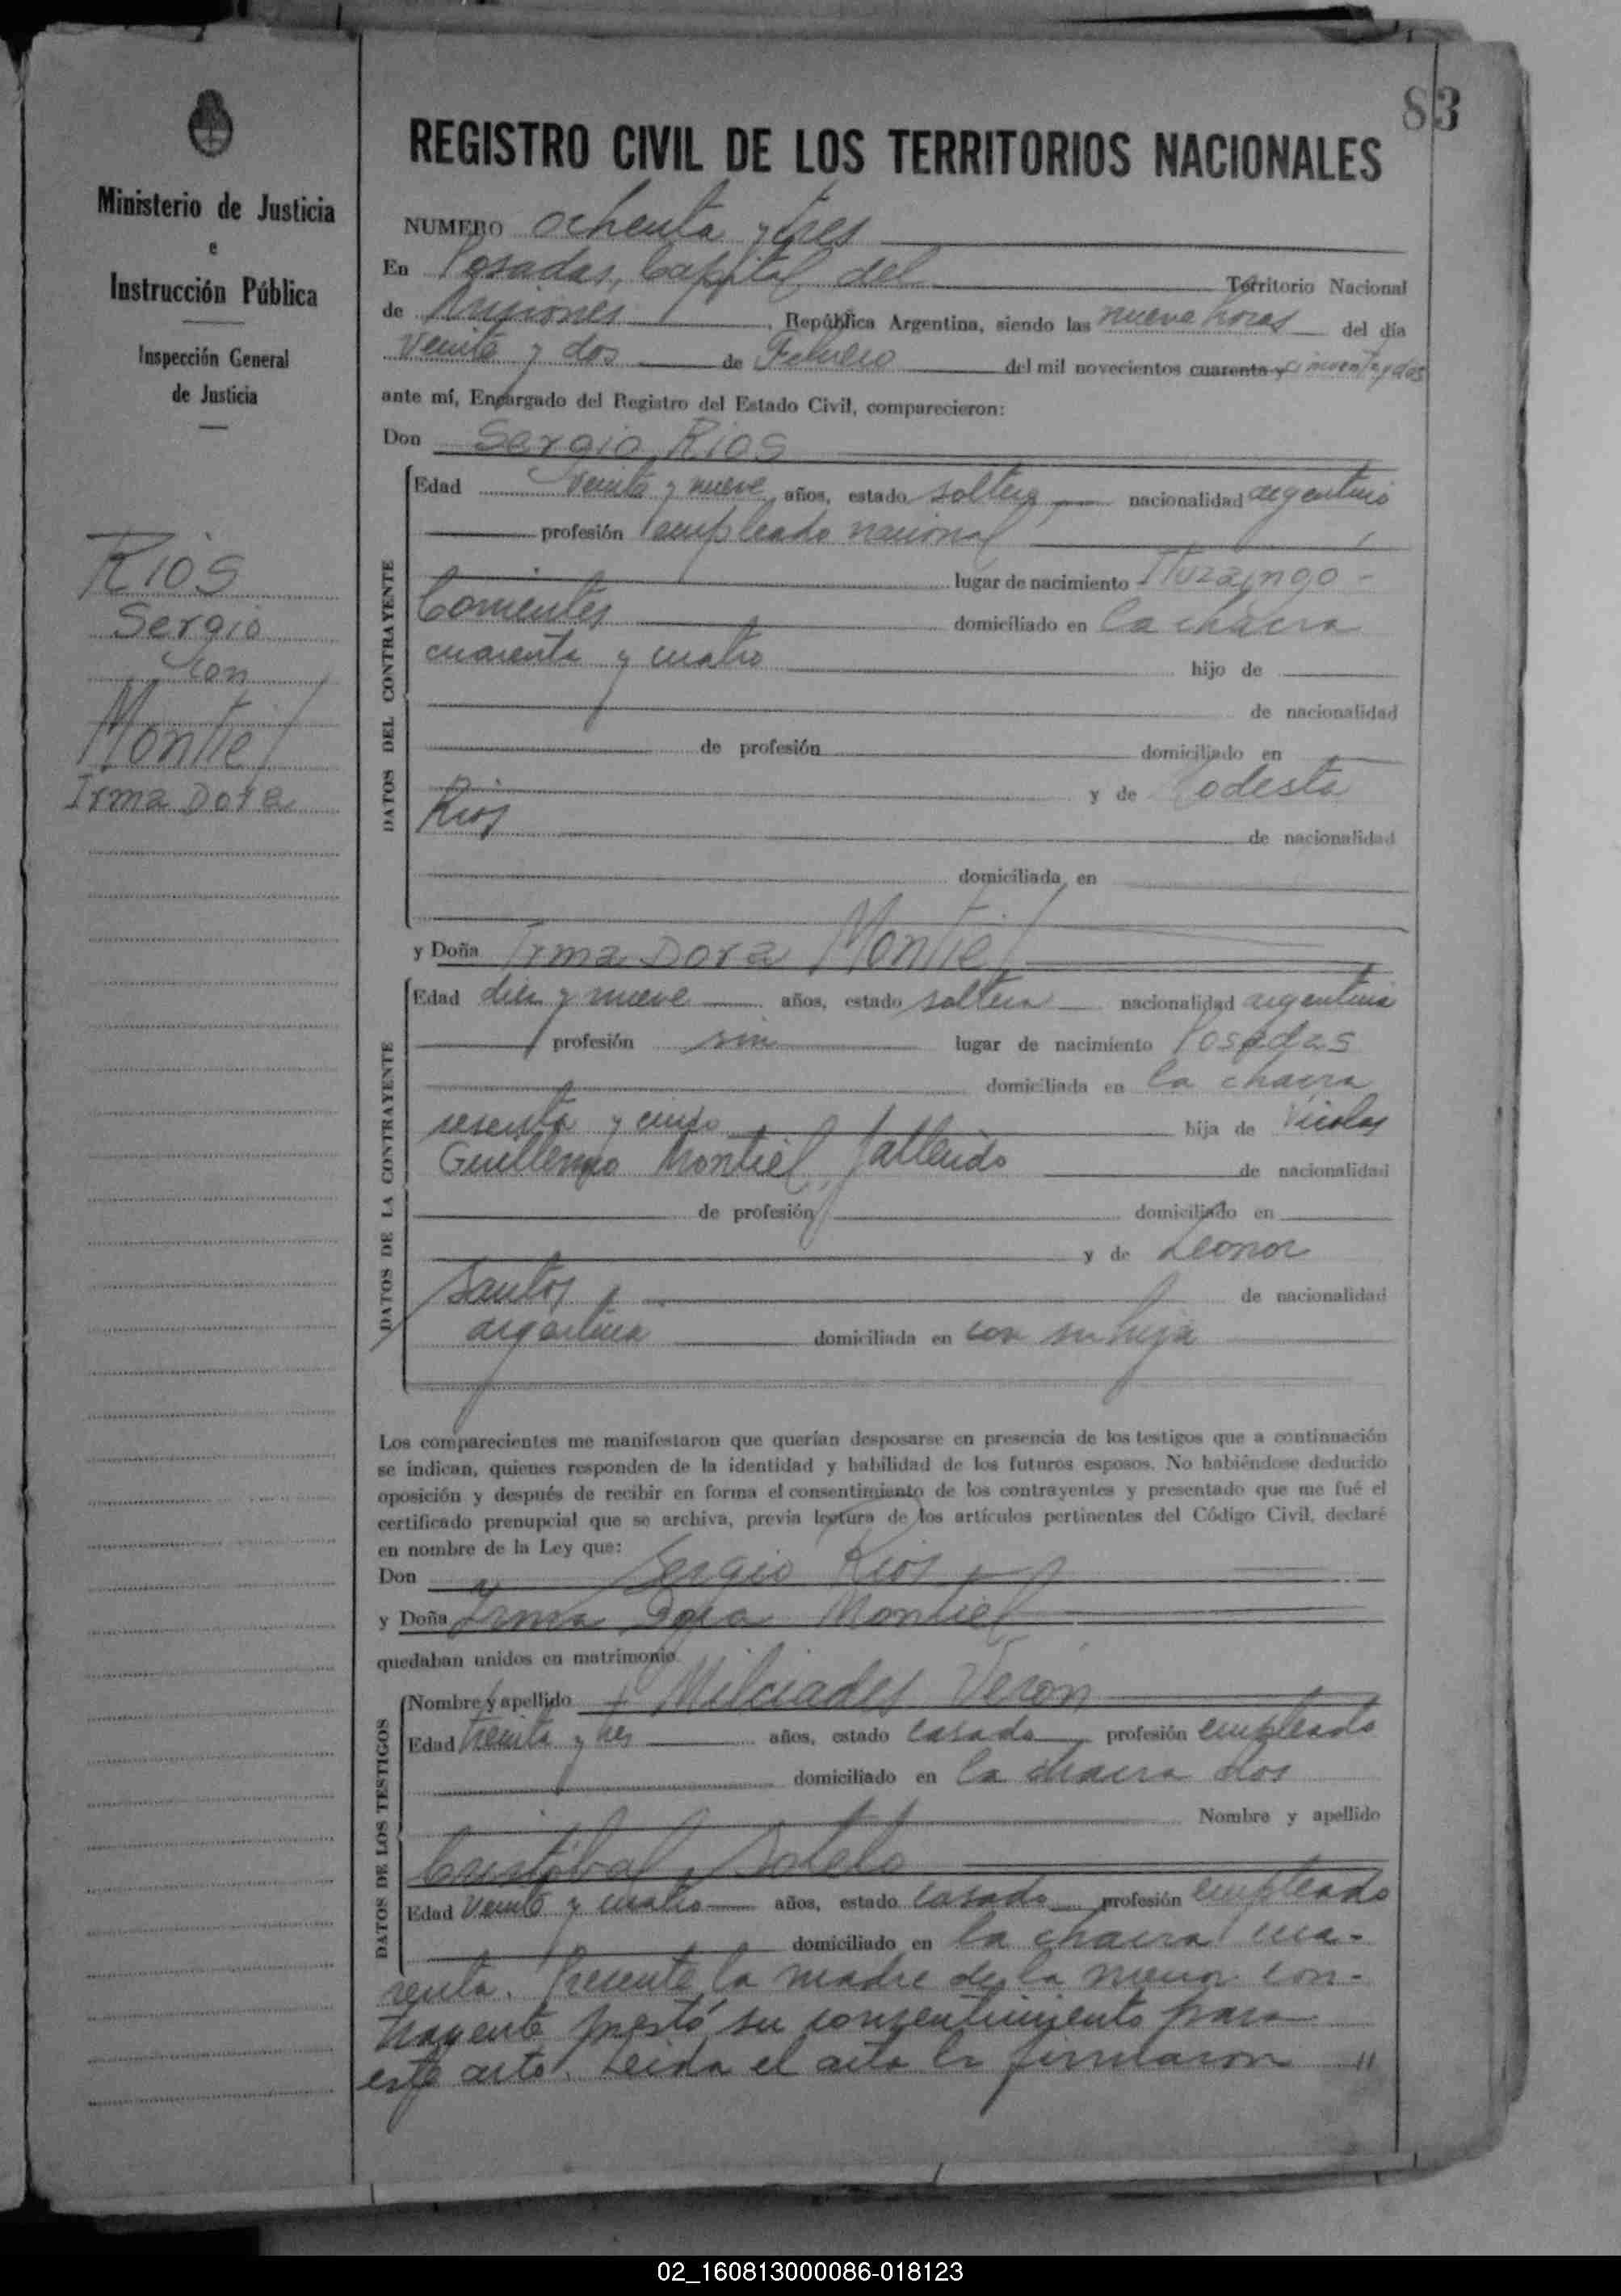 83
Ministerio de Justicia
e
Instrucción Pública
Inspección General
de Justicia
RIOS
Sergio
con
Montiel
Irma Dora
REGISTRO CIVIL DE LOS TERRITORIOS NACIONALES
NUMERO ochenta y tres
En Posadas, Capital del Territorio Nacional
de Misiones, República Argentina, siendo las nueve horas del día
veinte y dos de Febrero del mil novecientos cuarenta y cincuenta y dos
ante mí, Encargado del Registro del Estado Civil, comparecieron:
Don Sergio Rios
DATOS DEL CONTRAYENTE
Edad veinte y nueve años, estado soltero nacionalidad argentino
profesión empleado nacional
lugar de nacimiento Ituzaingo -
Corrientes domiciliado en la chacra
cuarenta y cuatro hijo de
de nacionalidad
de profesión domiciliado en
y de Modesta
Rios de nacionalidad
domiciliada en
y Doña Irma Dora Montiel
DATOS DE LA CONTRAYENTE
Edad diez y nueve años, estado soltera nacionalidad argentina
profesión sin lugar de nacimiento Posadas
domiciliada en la chacra
sesenta y cinco hija de Nicolas
Guillermo Montiel, fallecido de nacionalidad
de profesión domiciliado en
y de Leonor
Santos de nacionalidad
argentina domiciliada en con su hija
Los comparecientes me manifestaron que querían desposarse en presencia de los testigos que a continuación
se indican, quienes responden de la identidad y habilidad de los futuros esposos. No habiéndose deducido
oposición y después de recibir en forma el consentimiento de los contrayentes y presentado que me fué el
certificado prenupcial que se archiva, previa lectura de los artículos pertinentes del Código Civil, declaré
en nombre de la Ley que:
Don Sergio Rios
y Doña Irma Dora Montiel
quedaban unidos en matrimonio.
DATOS DE LOS TESTIGOS
Nombre y apellido Milciades Verón
Edad treinta y tres años, estado casado profesión empleado
domiciliado en la chacra dos
Nombre y apellido
Cristóbal Sotelo
Edad veinte y cuatro años, estado casado profesión empleado
domiciliado en la chacra cua-
renta. Presente la madre de la menor con-
trayente prestó su consentimiento para
este acto. Leida el acta la firmaron "
02_160813000086-018123